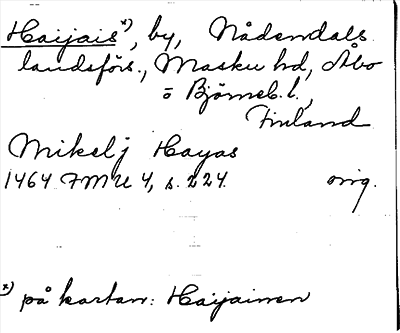 Haijais *), by, Nådendals
landsförs., Masku hd, Åbo
o Björneb. l.,
Finland
Mikelj Hayas
1464 FMU 4, s. 224. orig.
*) på kartan: Haijainen